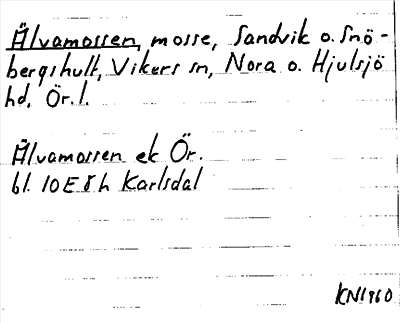 Älvamossen, mosse, Sandvik o. Snö-
bergshult, Vikers sn, Nora o. Hjulsjö
hd, Ör. l.
Älvamossen ek Ör.
bl. 10E8h Karlsdal
KN1960